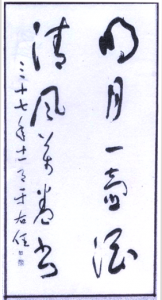 明月一壺酒
清風萬卷書
三十七年十一月 于右任